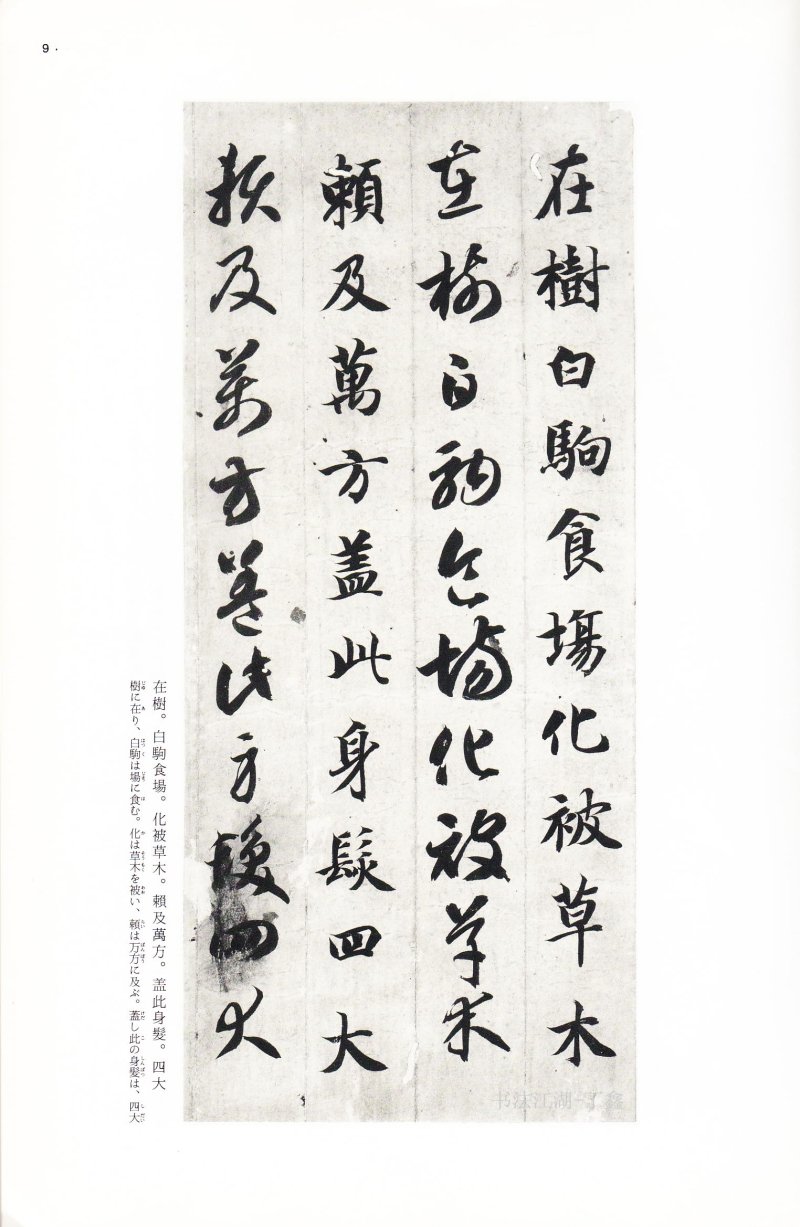 9
在樹白駒食場化被草木
在樹白駒食場化被草木
賴及萬方盖此身髮四大
賴及萬方盖此身髮四大
在樹。白駒食場。化被草木。賴及萬方。盖此身髮。四大
樹に在り、白駒は場に食む。化は草木を被い、賴は万方に及ぶ。蓋し此の身髪は、四大
书法江湖